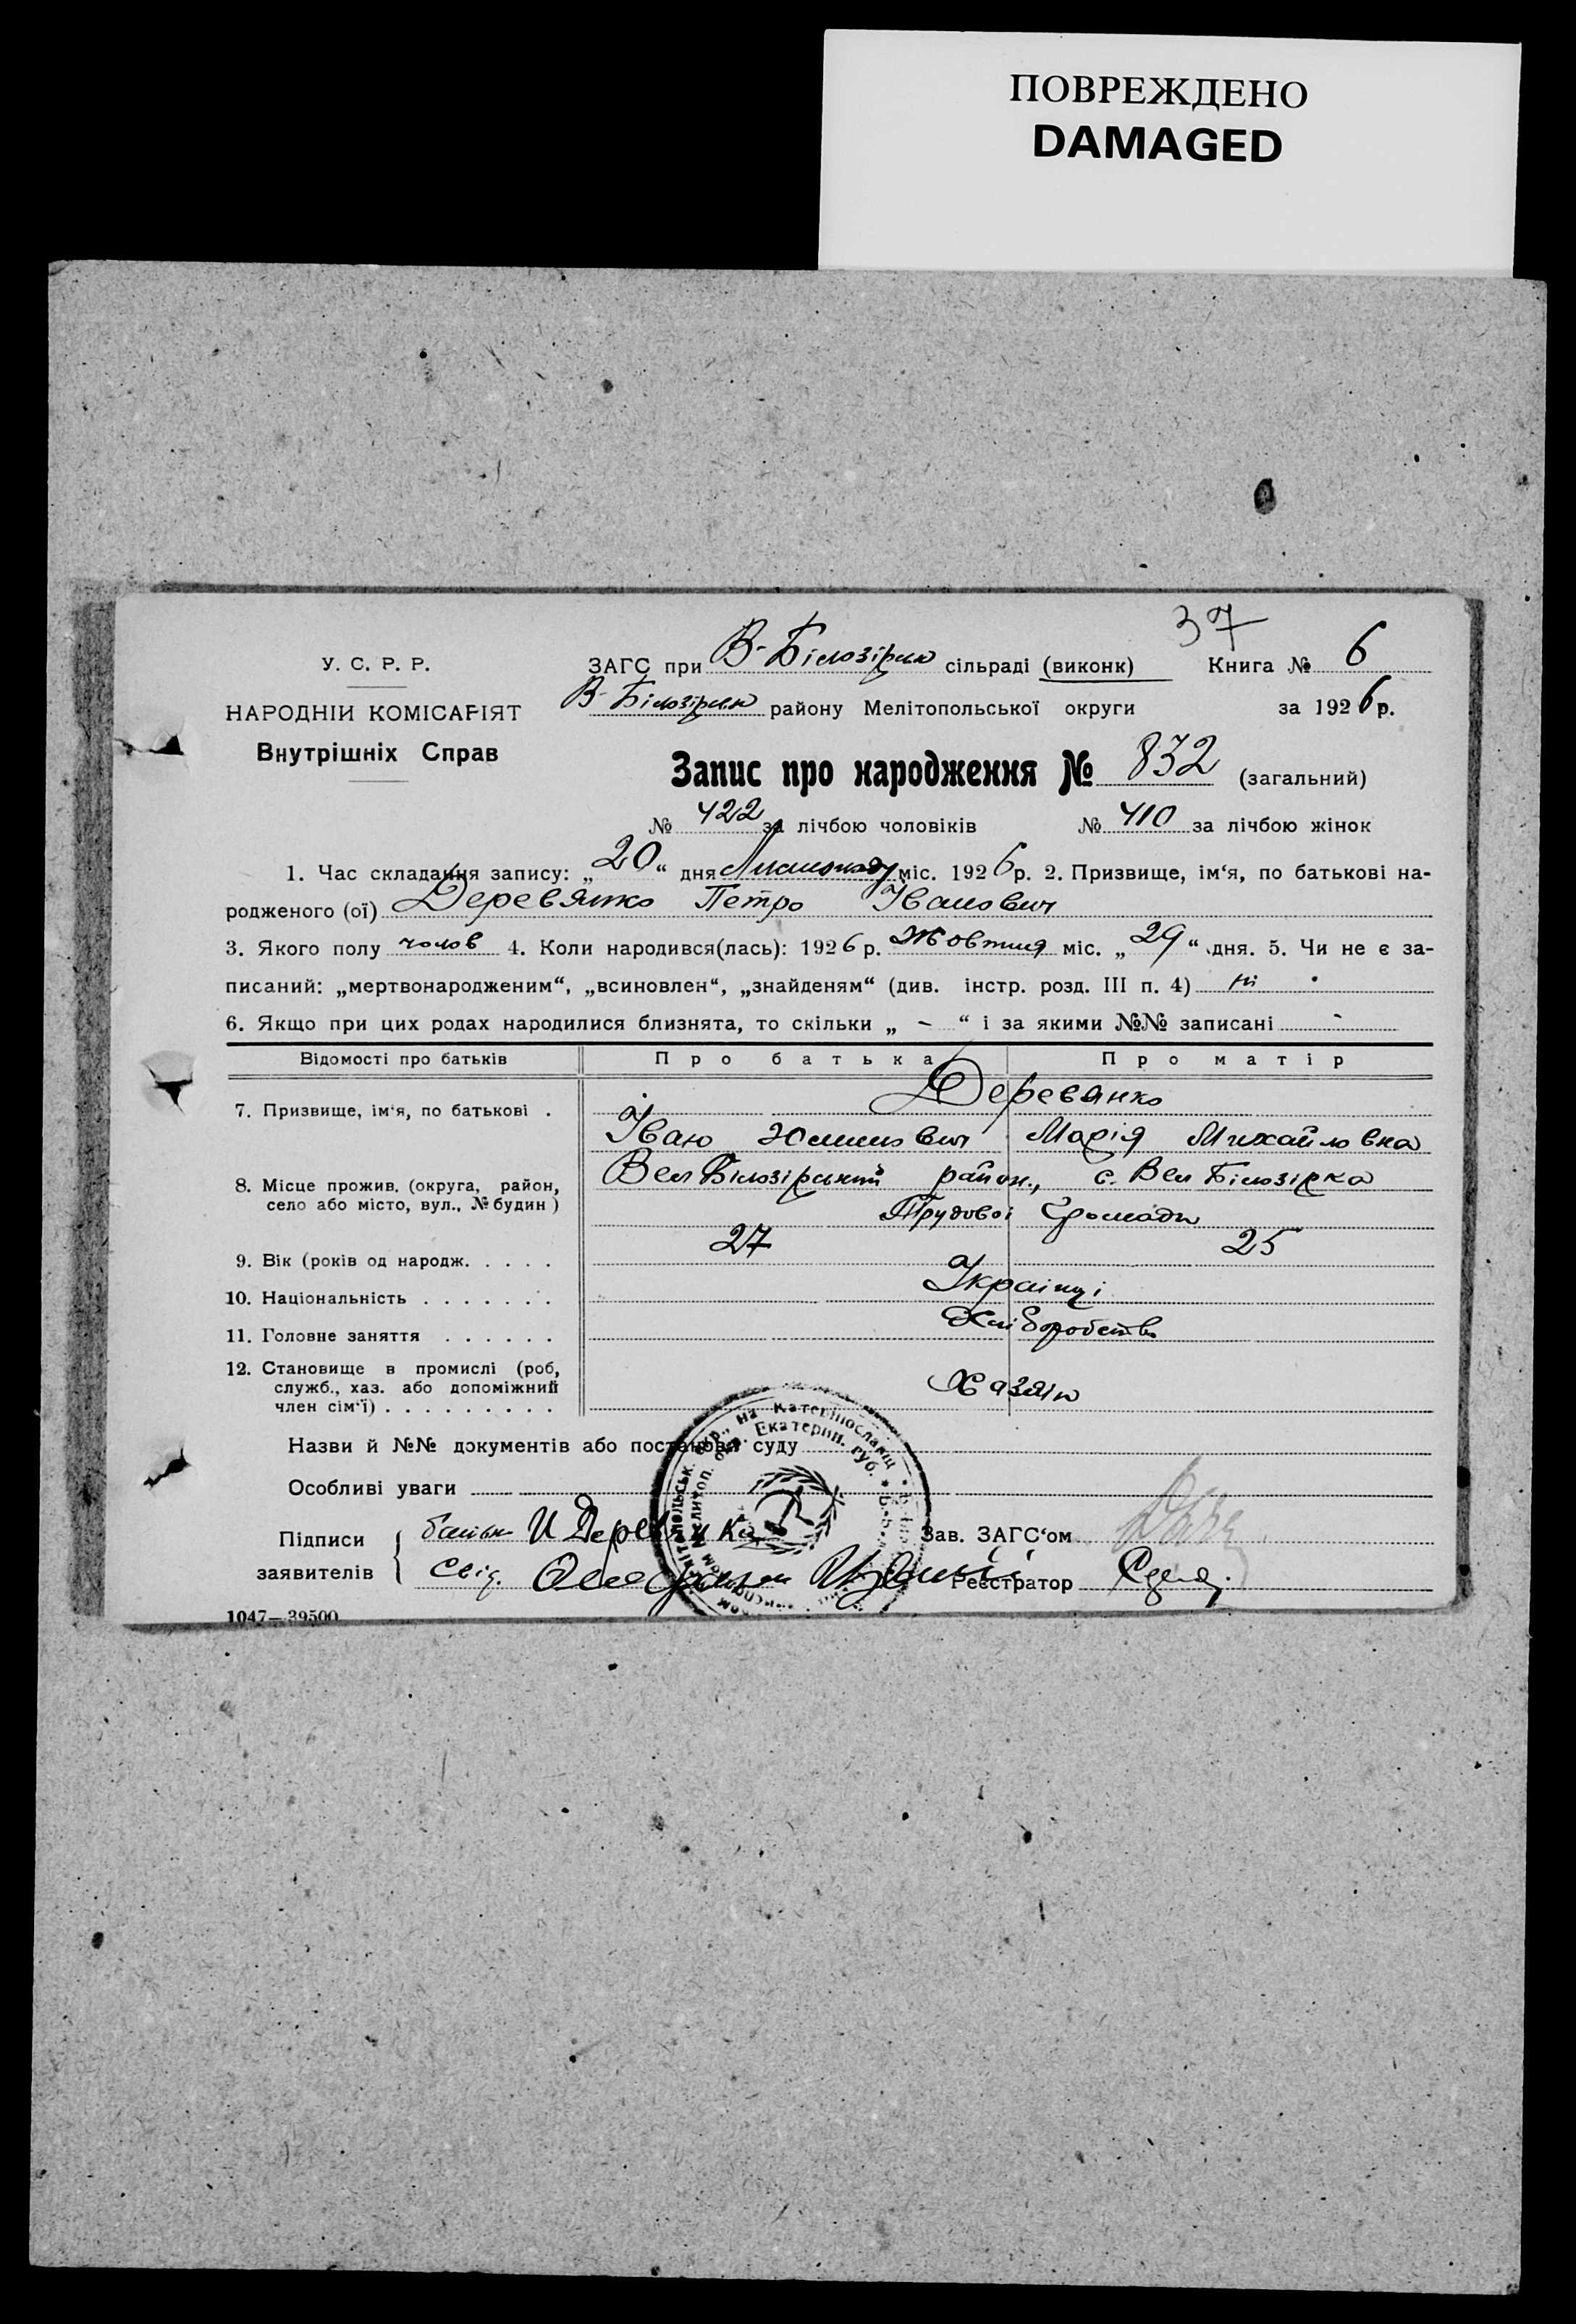 ПОВРЕЖДЕНО
DAMAGED
37
У. С. Р. Р.
ЗАГС при В-Білозірськ сільраді (виконк) Книга № 6
НАРОДНІЙ КОМІСАРІЯТ
В-Білозірськ району Мелітопольської округи за 1926 р.
Внутрішніх Справ
Запис про народження № 832 (загальний)
№ 422 за лічбою чоловіків № 410 за лічбою жінок
1. Час складання запису: „20“ дня Листопаду міс. 1926 р. 2. Призвище, ім‘я, по батькові на-
родженого (ої) Деревянко Петро Іванович
3. Якого полу чолов 4. Коли народився(лась): 1926 р. Жовтня міс. „29“ дня. 5. Чи не є за-
писаний: „мертвонародженим“, „всиновлен“, „знайденям“ (див. інстр. розд. III п. 4) ні
6. Якщо при цих родах народилися близнята, то скільки „ - “ і за якими №№ записані -
Відомості про батьків Про батька Про матір
7. Призвище, ім‘я, по батькові . Деревянко
Іван Марія Михайловна
8. Місце прожив. (округа, район, село або місто, вул., № будин) Вел Білозірський район., с. Вел Білозірка
Трудової Громади
9. Вік (років од народж. . . . . 27 25
10. Національність . . . . . . . Українці
11. Головне заняття . . . . . . Хліборобство
12. Становище в промислі (роб,
служб., хаз. або допоміжний
член сім‘ї) . . . . . . . . . Хазяїн
Назви й №№ документів або постанови суду
Особливі уваги
Підписи заявителів батьк И Деревянко
Зав. ЗАГС‘ом
Свід.
Реєстратор
1047—39500